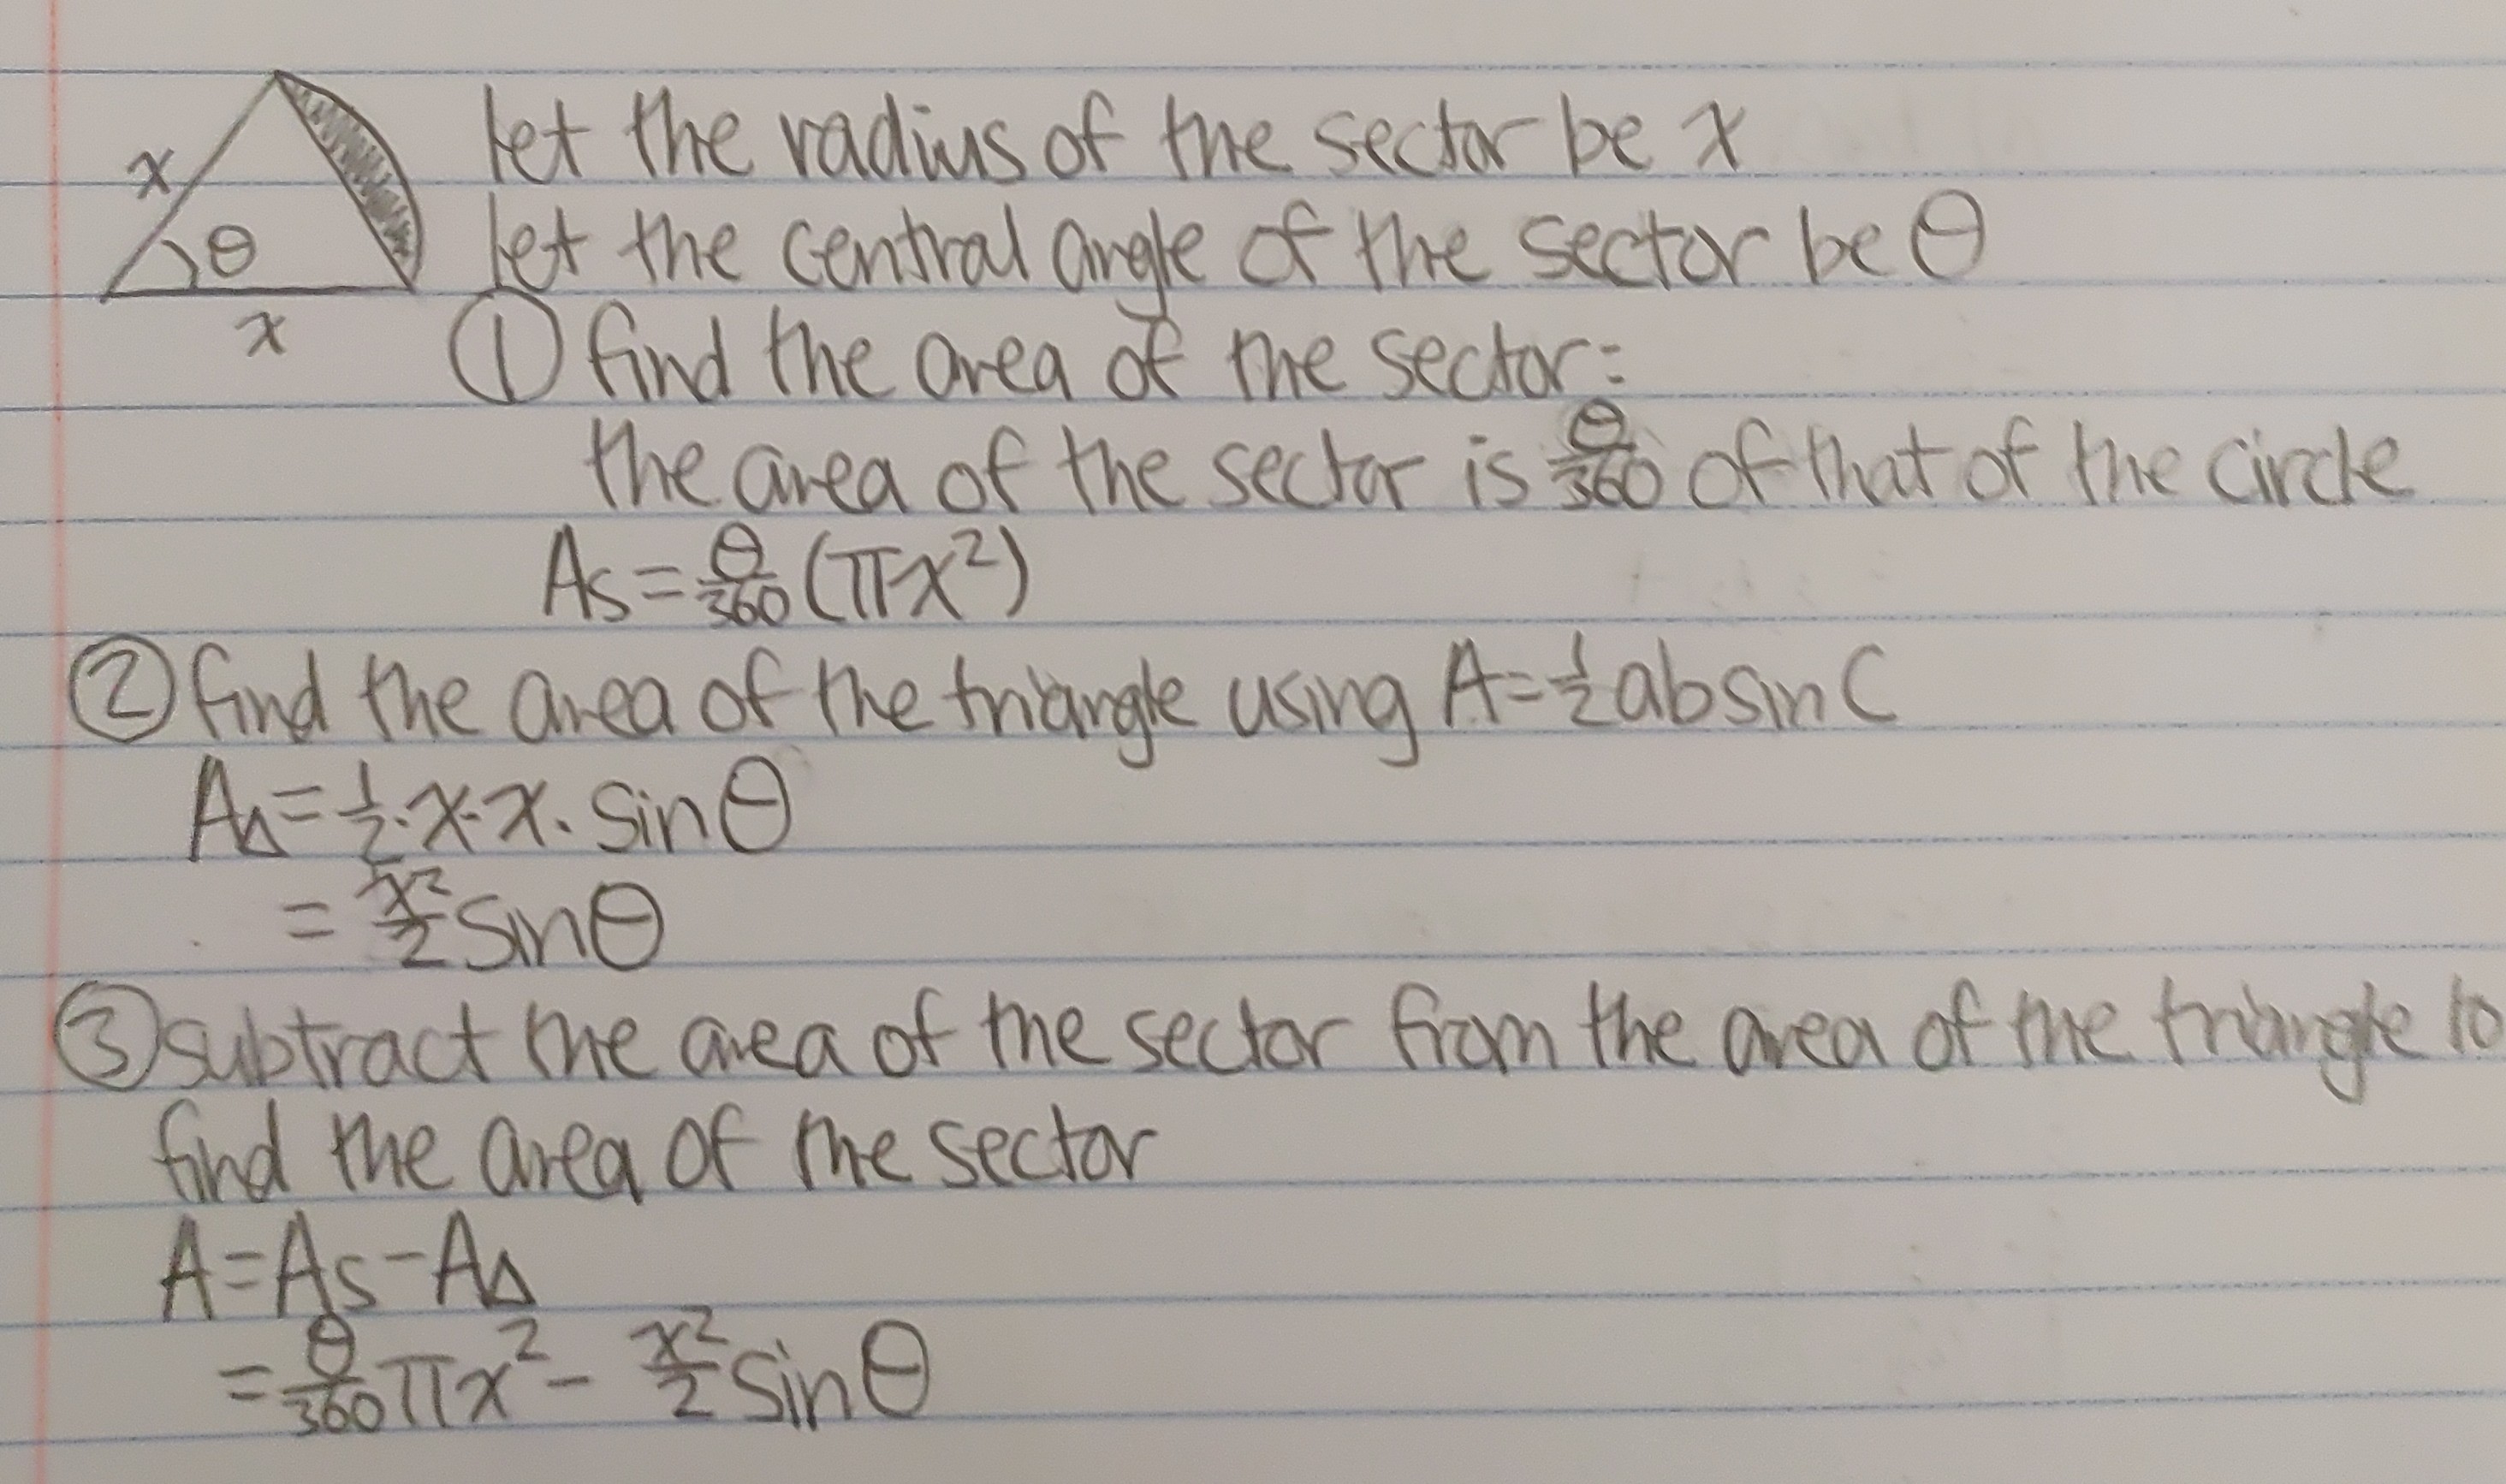 let the radius of the sector be x
x
let the central angle of the sector be θ
θ
x
① find the area of the sector:
the area of the sector is θ/360 of that of the circle
As = θ/360 (πx²)
② find the area of the triangle using A = 1/2 ab sin C
A△ = 1/2 · x · x · sin θ
= x²/2 sin θ
③ subtract the area of the sector from the area of the triangle to
find the area of the sector
A = As - A△
= θ/360 πx² - x²/2 sin θ